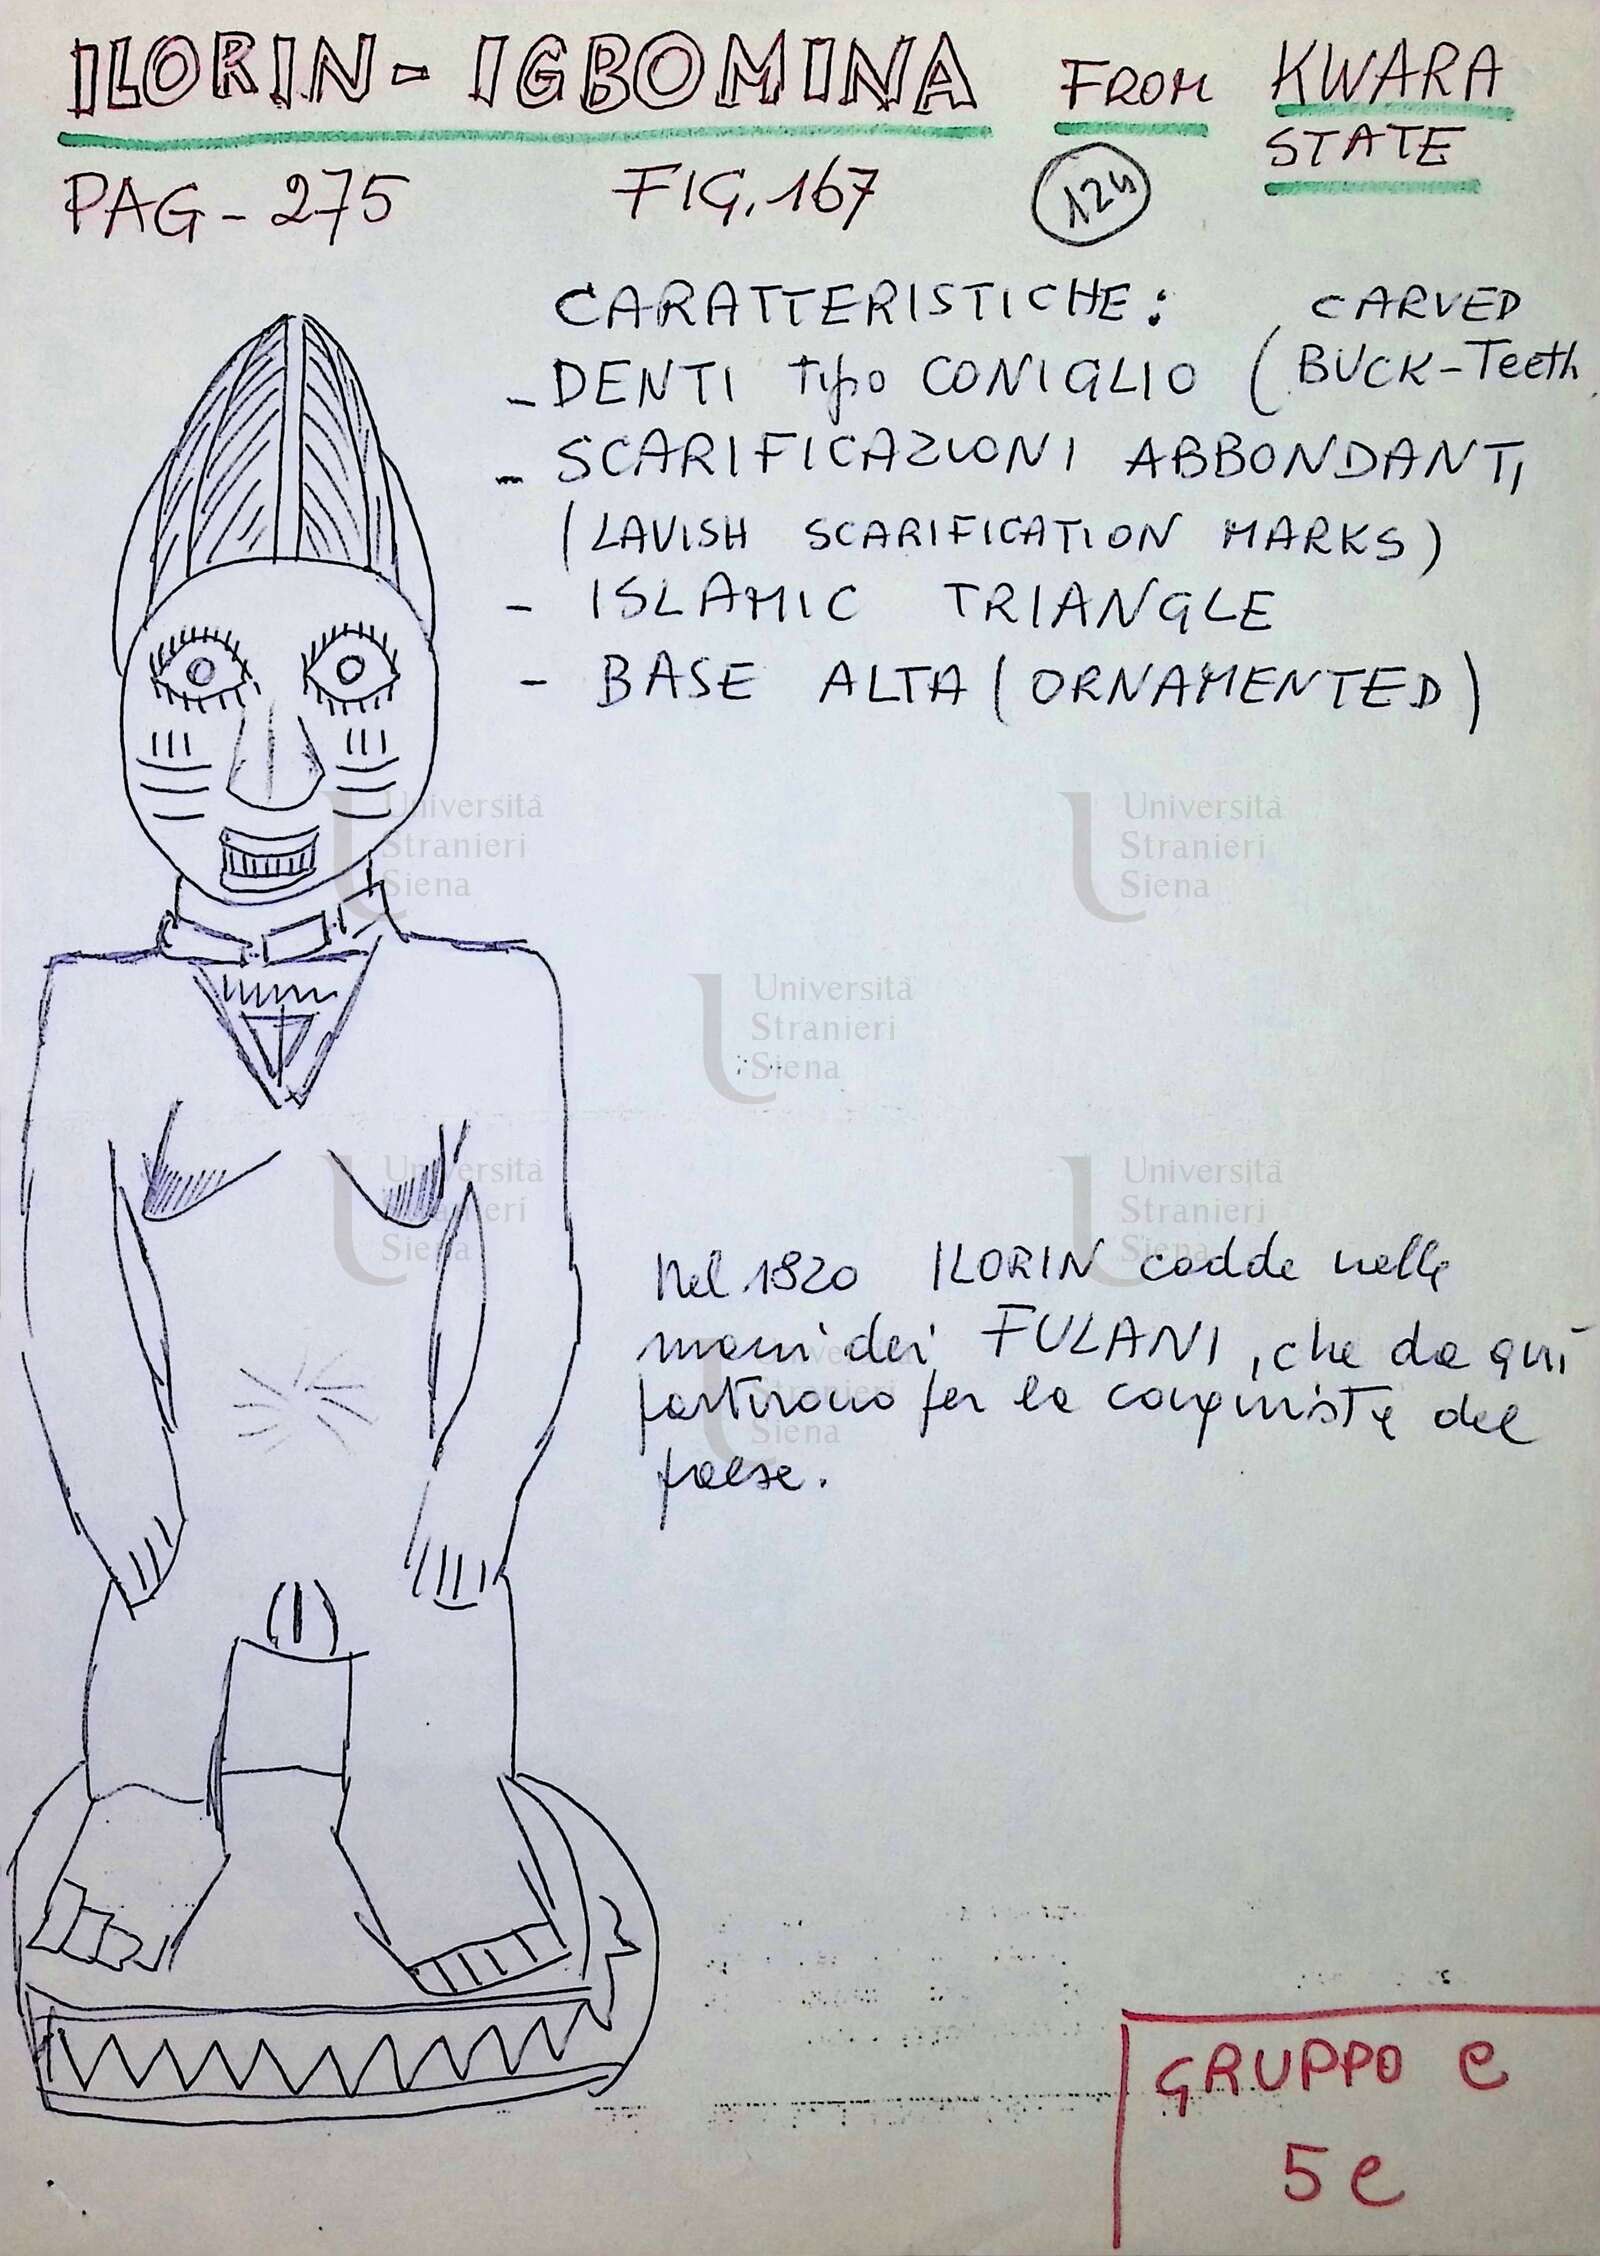 ILORIN - IGBOMINA FROM KWARA
STATE
PAG - 275 FIG. 167
CARATTERISTICHE: CARVED
- DENTI tipo CONIGLIO ( BUCK-Teeth
- SCARIFICAZIONI ABBONDANTI
(LAVISH SCARIFICATION MARKS)
- ISLAMIC TRIANGLE
- BASE ALTA (ORNAMENTED)
Nel 1820 ILORIN cadde nelle
mani dei FULANI, che da qui
partirono per la conquista del
paese.
GRUPPO e
5e
Università
Stranieri
Siena
Università
Stranieri
Siena
Università
Stranieri
Siena
Università
Stranieri
Siena
Università
Stranieri
Siena